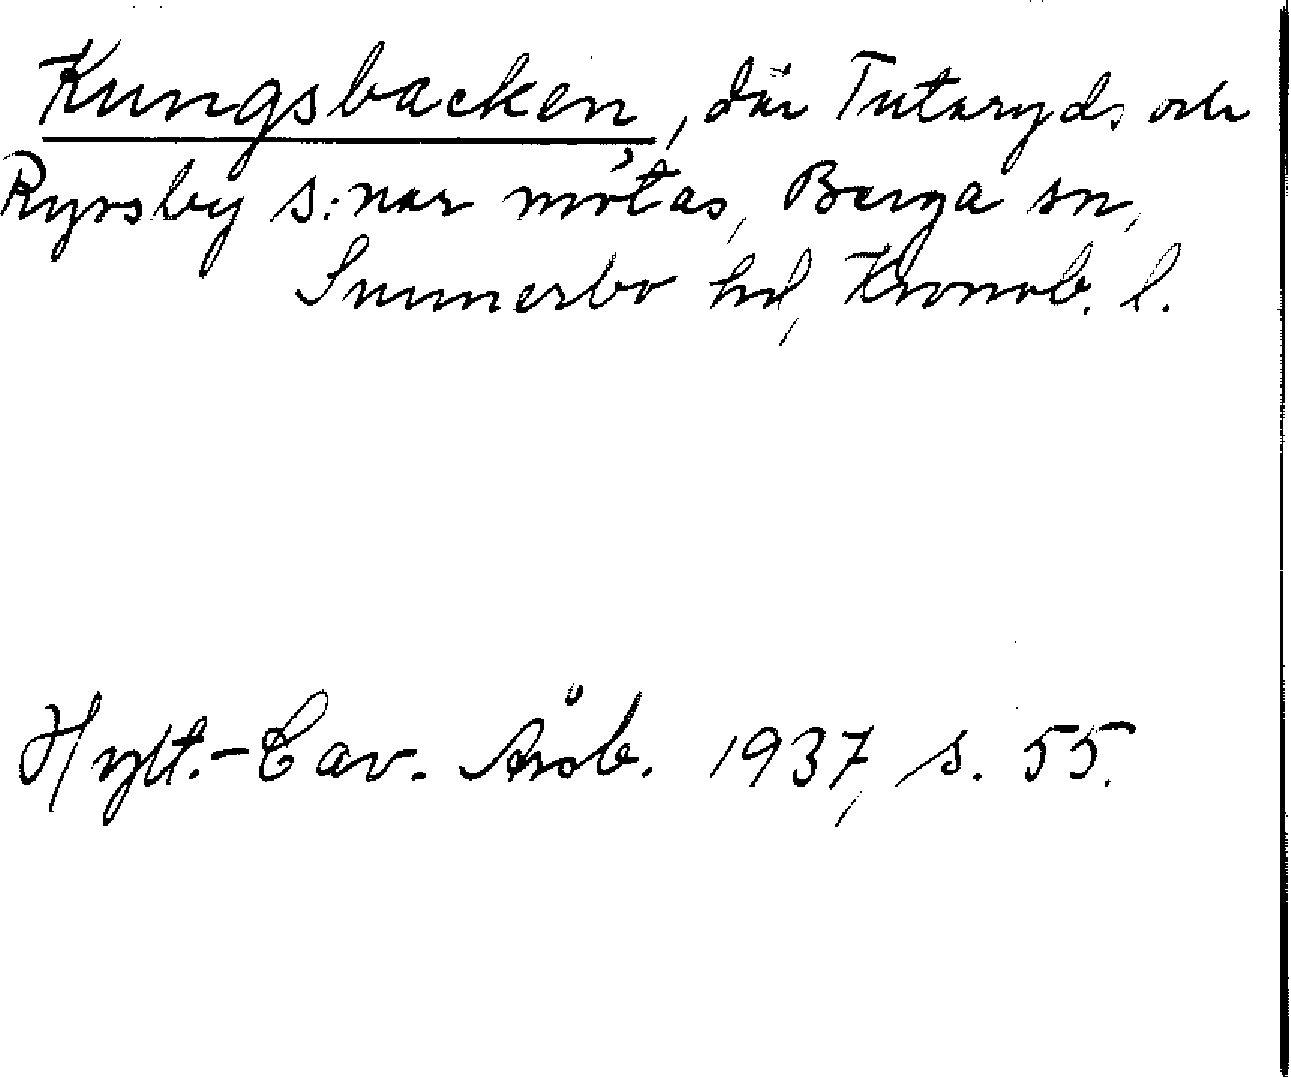 Kungsbacken, där Tutaryds och
Ryssby s:nar mötas, Berga sn,
Sunnerbo hd, Kronob. l.
Hylt.-Cav. Årsb. 1937, s. 55.